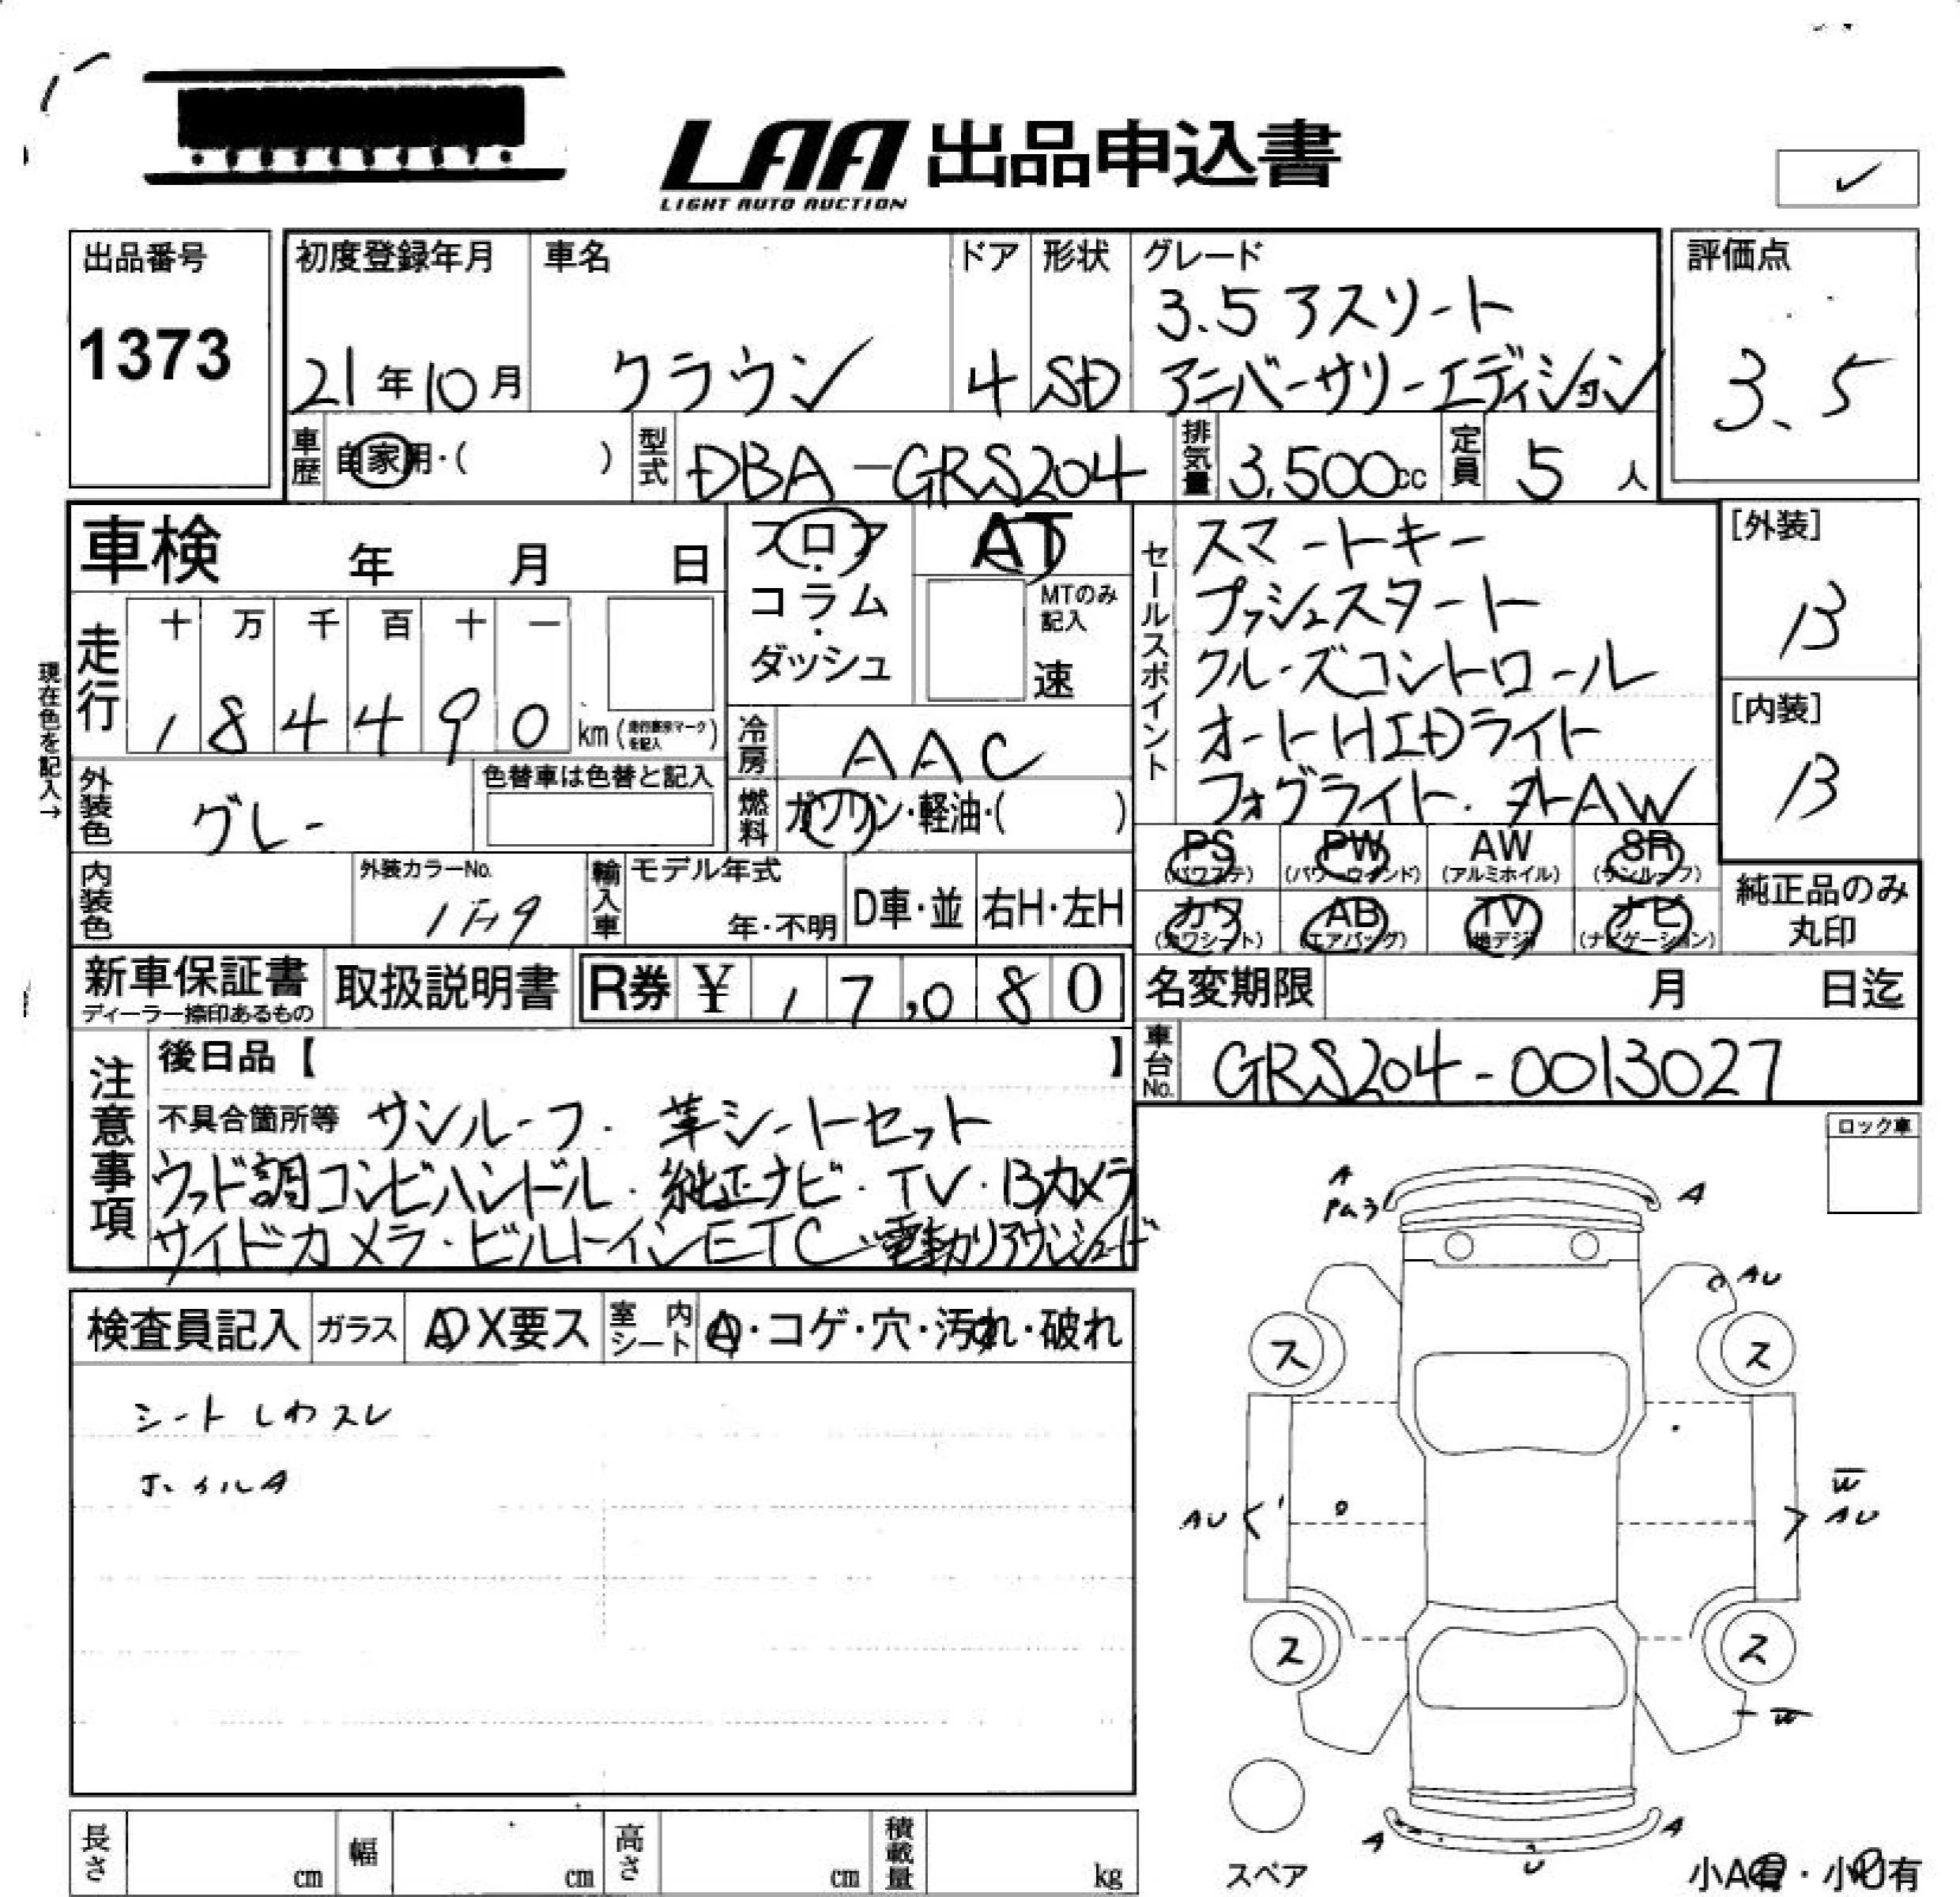 LAA 出品申込書
LIGHT AUTO AUCTION
✓
出品番号
1373
初度登録年月
21年10月
車名
クラウン
ドア
4
形状
SD
グレード
3.5アスリート
アニバーサリーエディション
評価点
3.5
車歴
自家用・( )
型式
DBA-GRS204
排気量
3,500cc
定員
5人
車検 年 月 日
フロア・コラム・ダッシュ
AT
MTのみ記入
速
セールスポイント
スマートキー
プッシュスタート
クルーズコントロール
オートHIDライト
フォグライト・ AW
[外装]
B
[内装]
B
現在色を記入→
走行
十 万 千 百 十 一
1 8 4 4 9 0 km (走行表示マークを記入)
冷房
AAC
外装色
グレー
色替車は色替と記入
燃料
ガソリン・軽油・( )
PS (パワステ)
PW (パワーウインド)
AW (アルミホイル)
SR (サンルーフ)
カワ (カワシート)
AB (エアバッグ)
TV (地デジ)
ナビ (ナビゲーション)
純正品のみ丸印
内装色
外装カラーNo.
輸入車
モデル年式
年・不明
D車・並
右H・左H
新車保証書
ディーラー捺印あるもの
取扱説明書
R券 ¥ 17,080
名変期限 月 日迄
車台No.
GRS204-0013027
注意事項
後日品【 】
不具合箇所等 サンルーフ・革シートセット
ウッド調コンビハンドル・純正ナビ・TV・Bカメラ
サイドカメラ・ビルトインETC・電動リアサンシェード
ロック車
検査員記入
ガラス
A X要ス
室内シート
A・コゲ・穴・汚れ・破れ
シートしわスレ
ホイルA
A
A
AU
ス
ス
W
AU
AU
ス
ス
W
A
U
A
スペア
小A有・小U有
長さ cm
幅 cm
高さ cm
積載量 kg